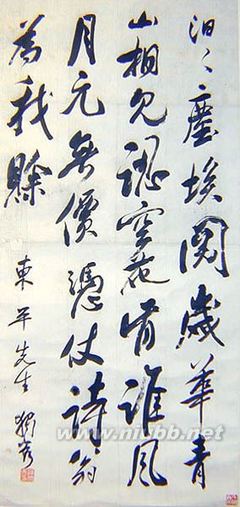 汩々塵埃閱歲華青
山相見空花誰風
月元無價憑仗詩翁
為我賒
東平先生 獨秀
www.niubb.net